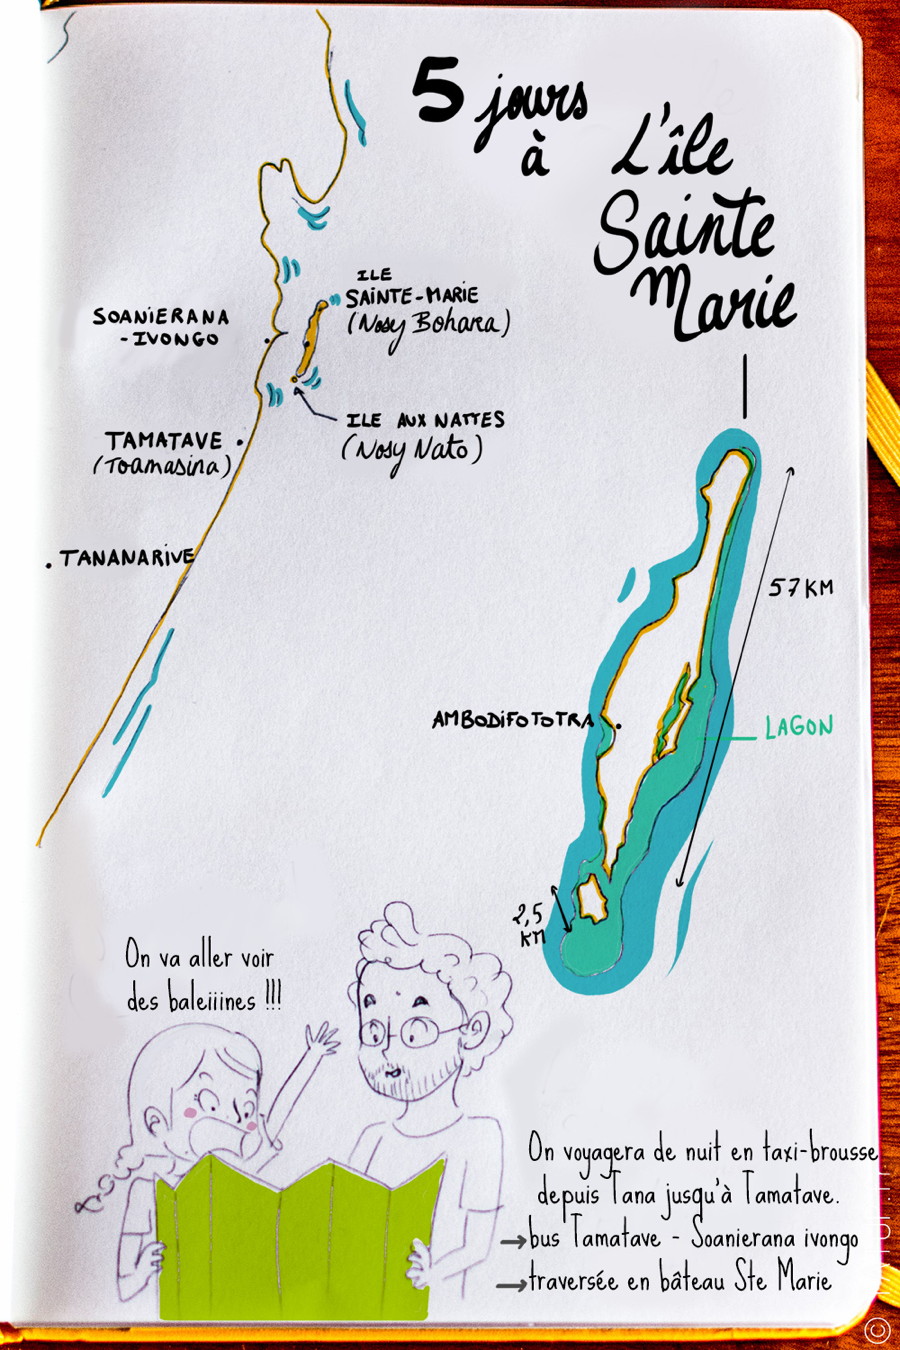 5 jours
à
L'île
Sainte
Marie
ILE
SAINTE-MARIE
(Nosy Bohara)
SOANIERANA
-IVONGO
ILE AUX NATTES
(Nosy Nato)
TAMATAVE
(Toamasina)
TANANARIVE
57 KM
AMBODIFOTOTRA
LAGON
2,5
KM
On va aller voir
des baleiiines !!!
On voyagera de nuit en taxi-brousse
depuis Tana jusqu'à Tamatave.
→bus Tamatave - Soanierana ivongo
→traversée en bâteau Ste Marie
©